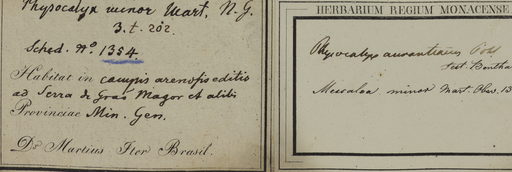 Physocalyx minor Mart. N. G.
3. t. 202.
Sched. No. 1354.
Habitat in campis arenosis editis
ad Serra de Grao Magor et aliis
Provinciae Min. Gen.
Dr. Martius Iter Brasil.
HERBARIUM REGIUM MONACENSE
Physocalyx aurantiacus Pohl
test. Bentha
minor Mart. Obs. 13